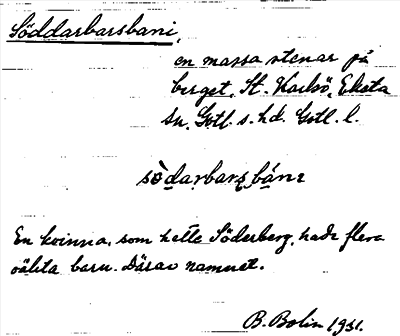 Söddarbarsbani,
en massa stenar på
berget, St. Karlsö, Eksta
sn, Gotl. s. hd. Gotl. l.
sòdarbarsbánı
En kvinna, som hette Söderberg, hade flera
oäkta barn. Därav namnet.
B. Bolin 1931.